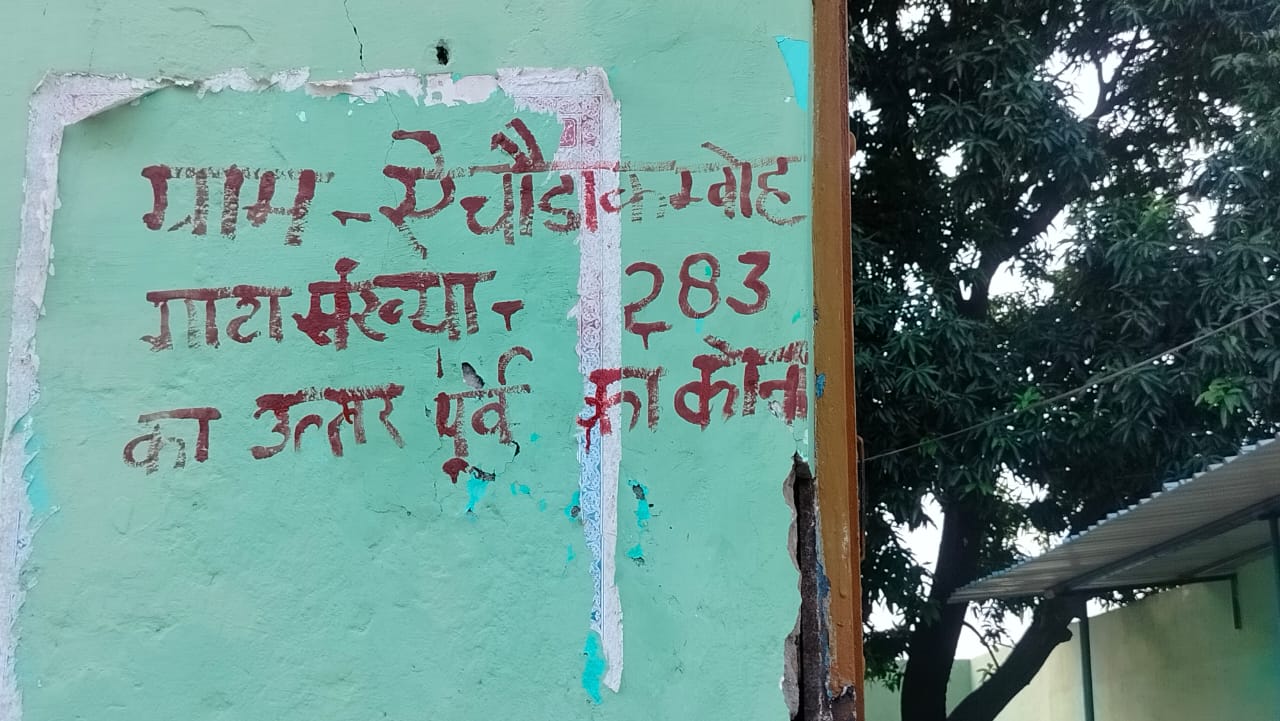 ग्राम - ऐचौडा कम्बोह
गाटा संख्या - 283
का उत्तर पूर्व का कोना